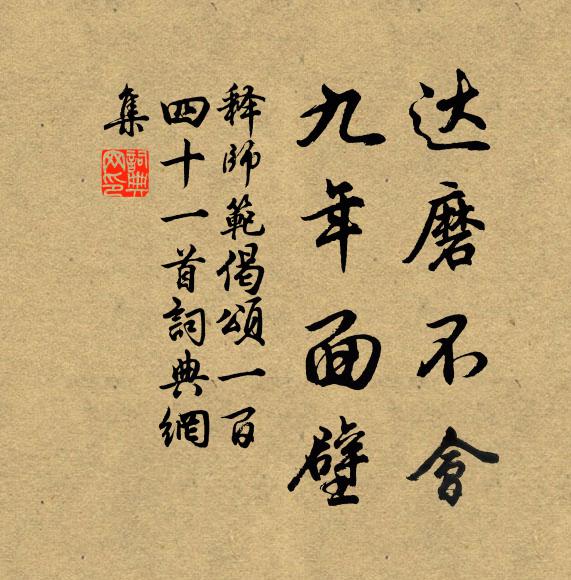 达磨不會
九年面壁
释師範偈頌一百
四十一首詞典網
集
詞典網印